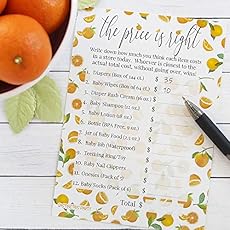 the price is right
Write down how much you think each item costs
in a store today. Whoever is closest to the
actual total cost, without going over, wins!
1. Diapers (Box of 144 ct.) $ 35
2. Baby Wipes (Box of 64 ct.) $ 10
3. Diaper Rash Cream (16 oz.) $
4. Baby Shampoo (15 oz.) $
5. Baby Lotion (18 oz.) $
6. Bottle (BPA Free, 9 oz.) $
7. Jar of Baby Food (2.5 oz.) $
8. Baby Bib (Waterproof) $
9. Teething Ring/Toy $
10. Baby Nail Clippers $
11. Onesies (Pack of 6) $
12. Baby Socks (Pack of 6) $
Total $